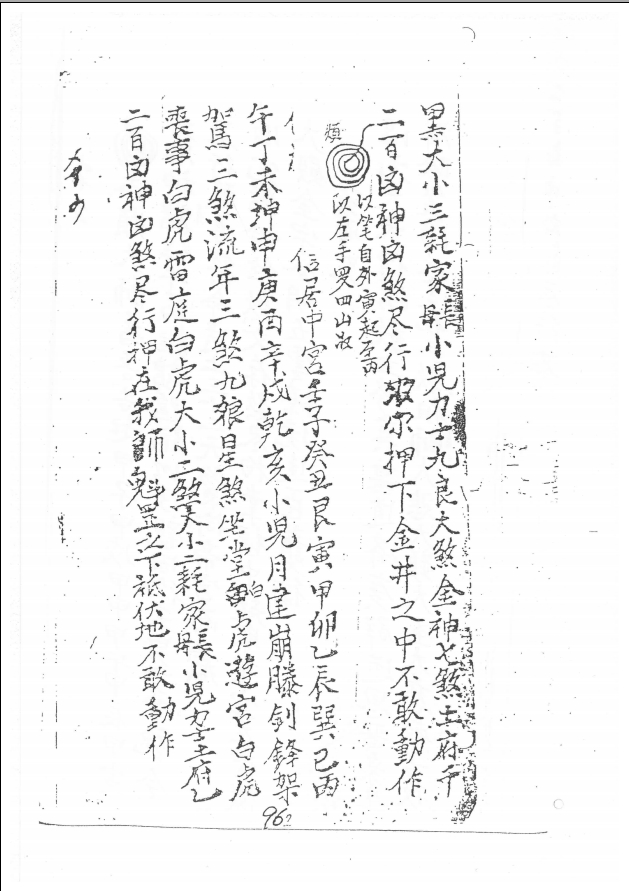 黑大小三耗家長母小児力士九良大煞金神七煞土府千
二百凶神凶煞尽行收押下金井之中不敢動作
以笔自外寅起至丙
以左手罗四山
信居中宮壬子癸丑艮寅甲卯乙辰巽巳丙
午丁未坤申庚酉辛戌乾亥小児月建崩騰剑鋒架
駕三煞流年三煞九娘星煞坐堂白虎遊宮白虎
喪事白虎雷庭白虎大小二煞大小二耗家長母小児力士土府
二百凶神凶煞尽行押在我師魁罡之下祗伏地不敢動作
96